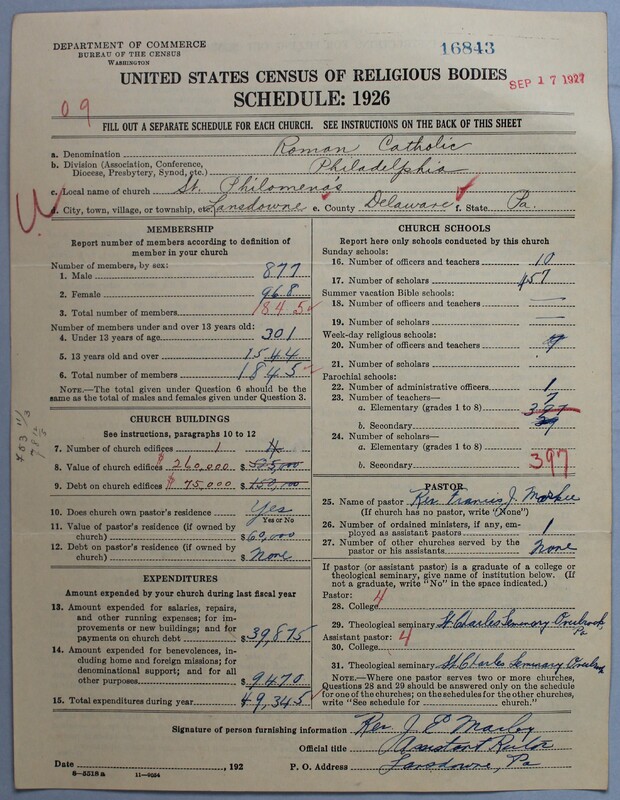 DEPARTMENT OF COMMERCE
BUREAU OF THE CENSUS
WASHINGTON
16843
UNITED STATES CENSUS OF RELIGIOUS BODIES
SEP 17 1927
SCHEDULE: 1926
09
FILL OUT A SEPARATE SCHEDULE FOR EACH CHURCH. SEE INSTRUCTIONS ON THE BACK OF THIS SHEET
a. Denomination Roman Catholic
b. Division (Association, Conference, Diocese, Presbytery, Synod, etc.) Philadelphia
c. Local name of church St. Philomenas
d. City, town, village, or township, etc. Lansdowne e. County Delaware f. State Pa.
MEMBERSHIP
Report number of members according to definition of
member in your church
Number of members, by sex:
1. Male 877
2. Female 968
3. Total number of members 1845
Number of members under and over 13 years old:
4. Under 13 years of age 301
5. 13 years old and over 1544
6. Total number of members 1845
NOTE.—The total given under Question 6 should be
the same as the total of males and females given under Question 3.
CHURCH BUILDINGS
See instructions, paragraphs 10 to 12
7. Number of church edifices 1
8. Value of church edifices $260,000 $
9. Debt on church edifices $75,000 $
10. Does church own pastor's residence? Yes
Yes or No
11. Value of pastor's residence (if owned by
church) $60,000
12. Debt on pastor's residence (if owned by
church) $ None
EXPENDITURES
Amount expended by your church during last fiscal year
13. Amount expended for salaries, repairs,
and other running expenses; for im-
provements or new buildings; and for
payments on church debt $39,875
14. Amount expended for benevolences, in-
cluding home and foreign missions; for
denominational support; and for all
other purposes $9470
15. Total expenditures during year $49,345
CHURCH SCHOOLS
Report here only schools conducted by this church
Sunday schools:
16. Number of officers and teachers 10
17. Number of scholars 457
Summer vacation Bible schools:
18. Number of officers and teachers —
19. Number of scholars —
Week-day religious schools:
20. Number of officers and teachers
21. Number of scholars
Parochial schools:
22. Number of administrative officers 1
23. Number of teachers—
a. Elementary (grades 1 to 8) 7 397
b. Secondary
24. Number of scholars—
a. Elementary (grades 1 to 8) 397
b. Secondary
PASTOR
25. Name of pastor Rev. Francis J. Markee
(If church has no pastor, write "None")
26. Number of ordained ministers, if any, em-
ployed as assistant pastors 1
27. Number of other churches served by the
pastor or his assistants None
If pastor (or assistant pastor) is a graduate of a college or
theological seminary, give name of institution below. (If
not a graduate, write "No" in the space indicated.)
Pastor: 4
28. College
29. Theological seminary St Charles Seminary Overbrook, Pa
Assistant pastor: 4
30. College
31. Theological seminary St Charles Seminary Overbrook
NOTE.—Where one pastor serves two or more churches,
Questions 28 and 29 should be answered only on the schedule
for one of the churches; on the schedules for the other churches,
write "See schedule for church."
Signature of person furnishing information Rev. J.
Official title Assistant Rector
Date , 192 P. O. Address Lansdowne, Pa
8-5518 a 11-9054